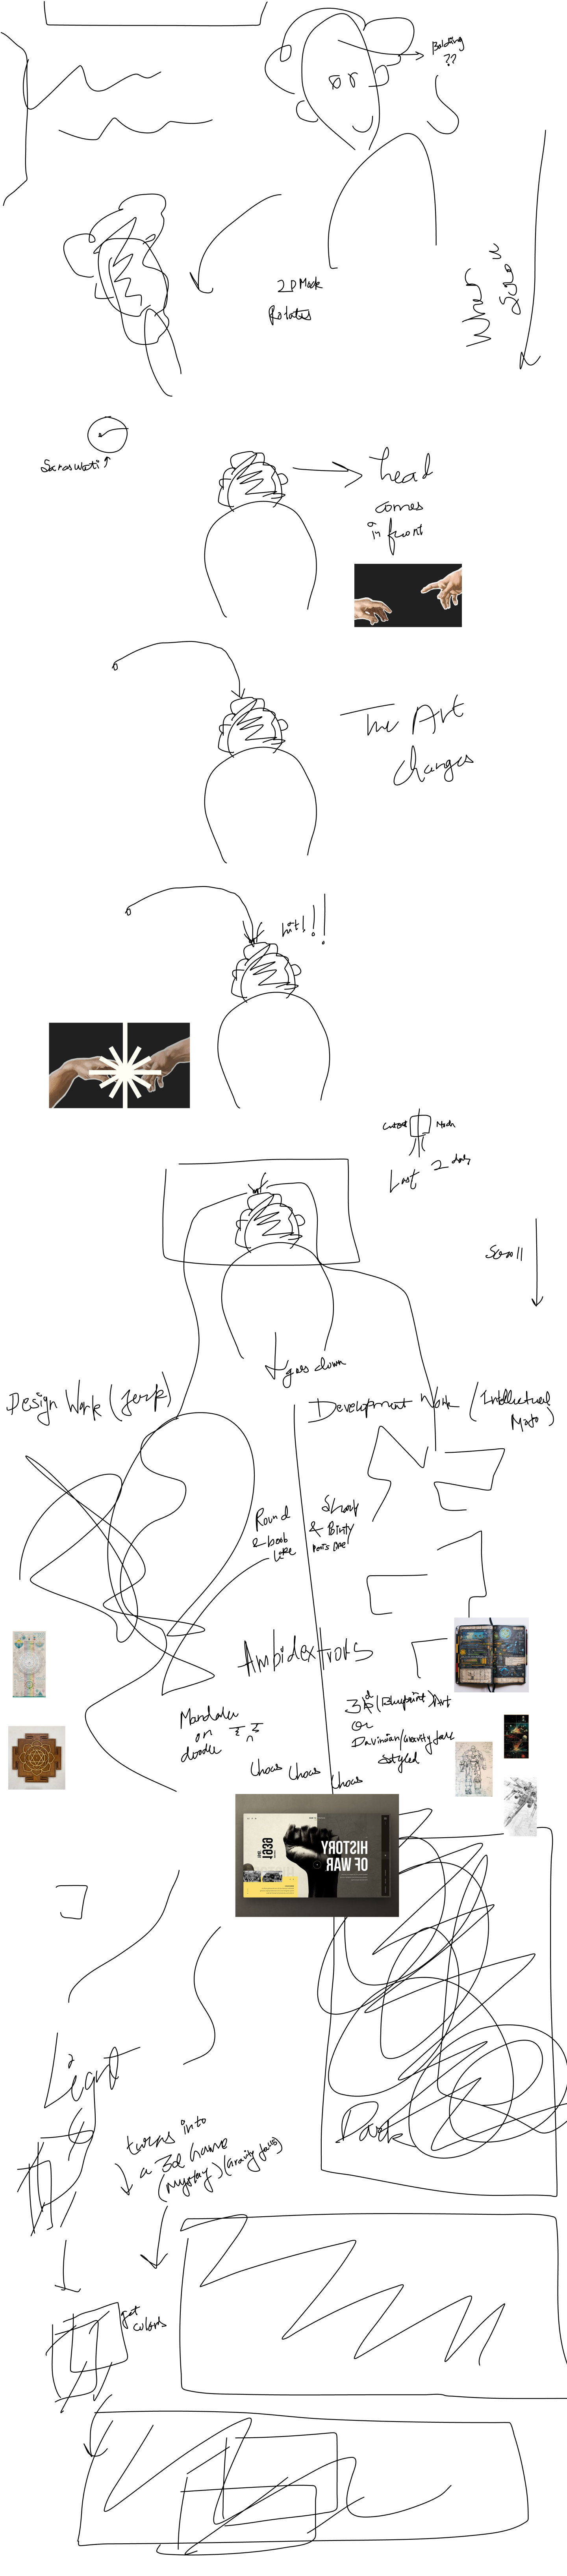 Balding
??
When
Scroll
2D Mock
Rotates
Saraswati
head
comes
in front
The Art
changes
hit!!
Last 2 days
Scroll
goes down
Design Work (Jerk)
Development Work (Intellectual
Mojo)
Round
& boob
like
Sharp
& Bitty
Ambidextrous
Mandala
or
doodle
3d (Blueprint) Art
or
Davinian/Gravity falls
styled
Chaos Chaos Chaos
1939
HISTORY
OF WAR
Light
Dark
turns into
a 3d Game
(mystery) (Gravity falls)
get
colors